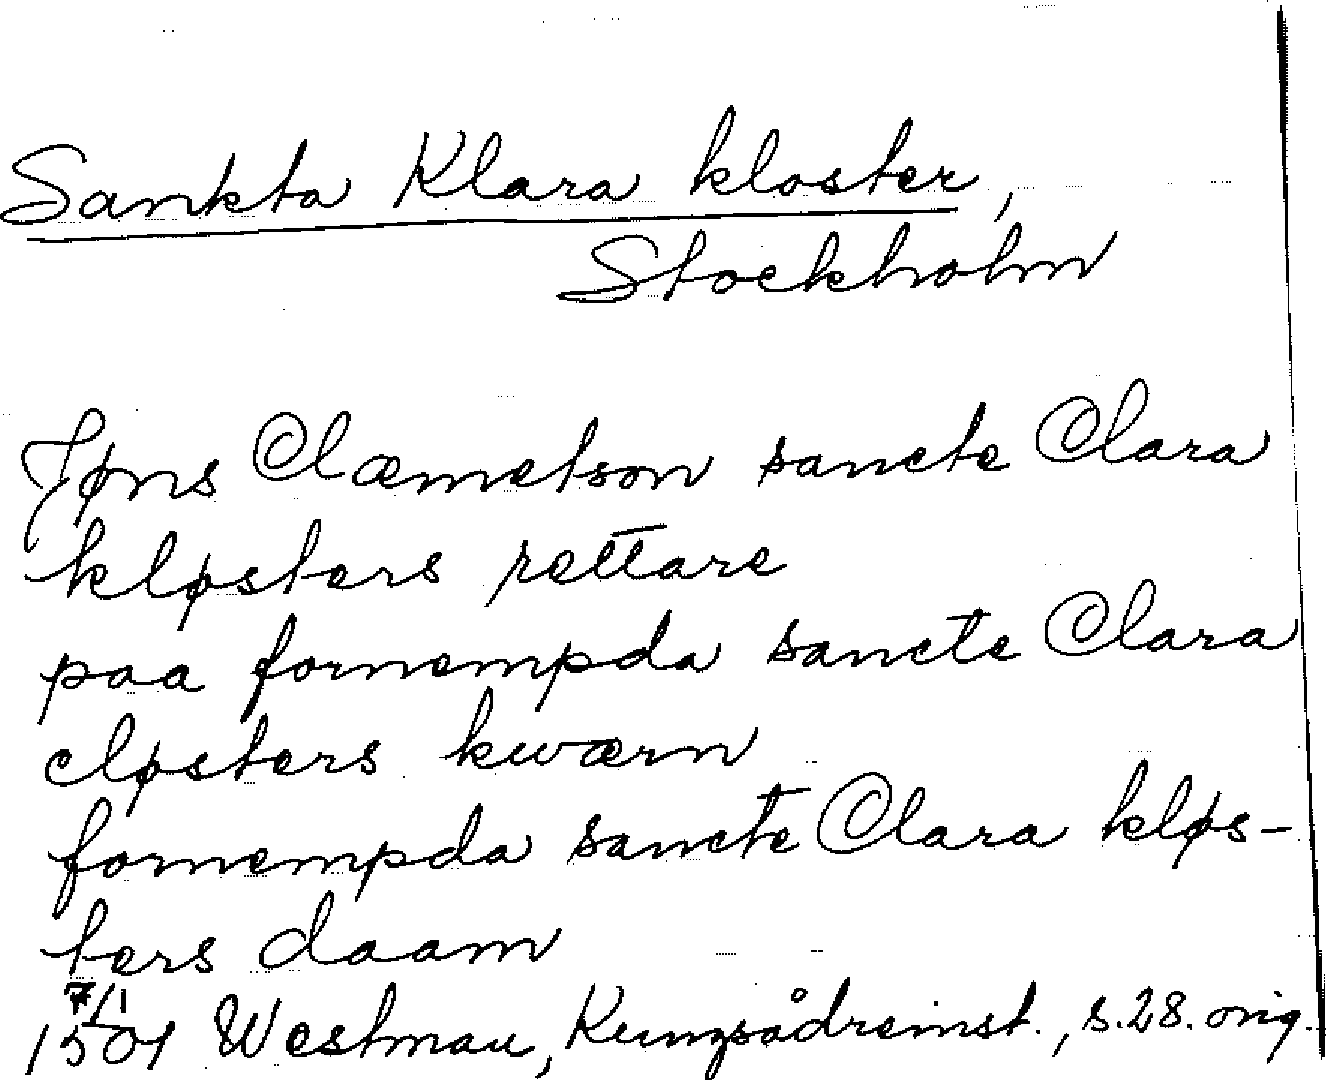 Sankta Klara kloster,
Stockholm
Jøns Clæmetson sancte Clara
kløsters rettare
paa fornempda sancte Clara
cløsters kwærn
fornempda sancte Clara kløs-
ters daam
7/1
1501 Westman, Kungsådreinst., s.28. orig.